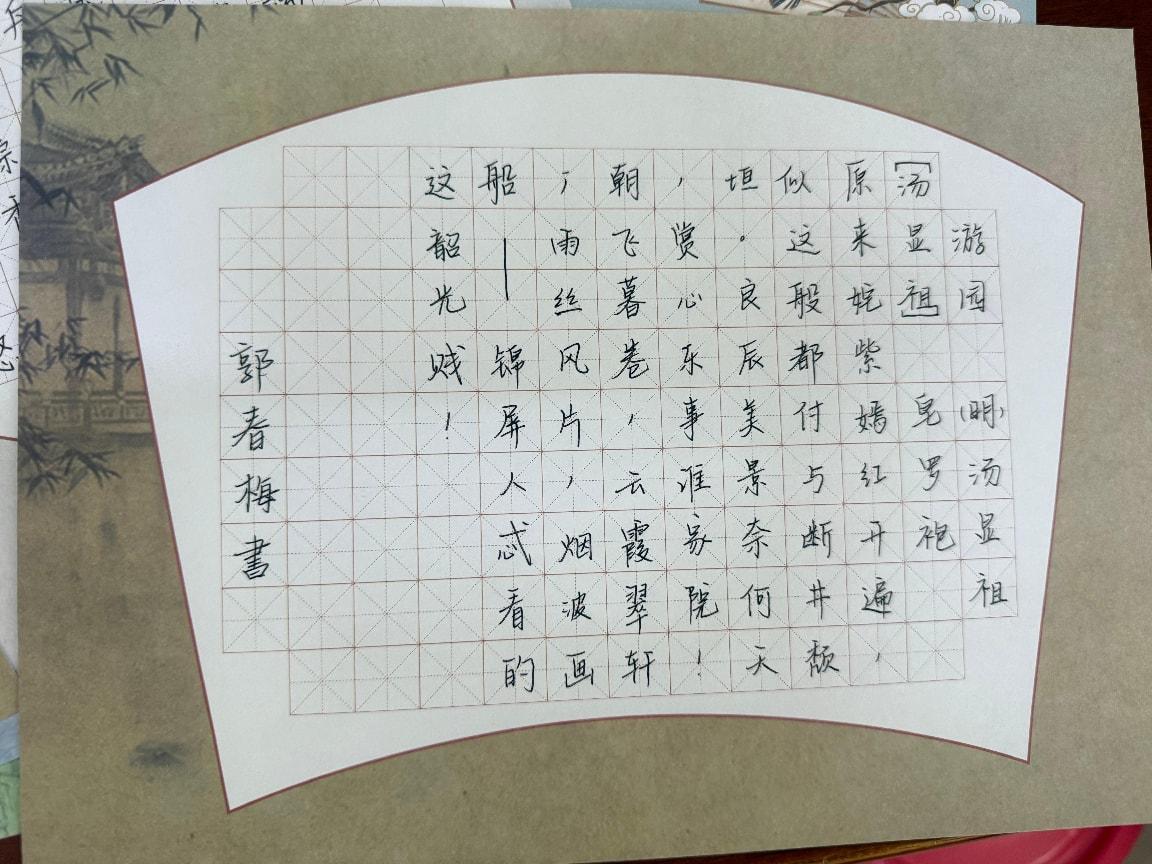 游园 (明)汤显祖
[汤显祖] 皂罗袍
原来姹紫嫣红开遍，
似这般都付与断井颓
垣。良辰美景奈何天
，赏心乐事谁家院！
朝飞暮卷，云霞翠轩
；雨丝风片，烟波画
船——锦屏人忒看的
这韶光贱！
郭春梅書